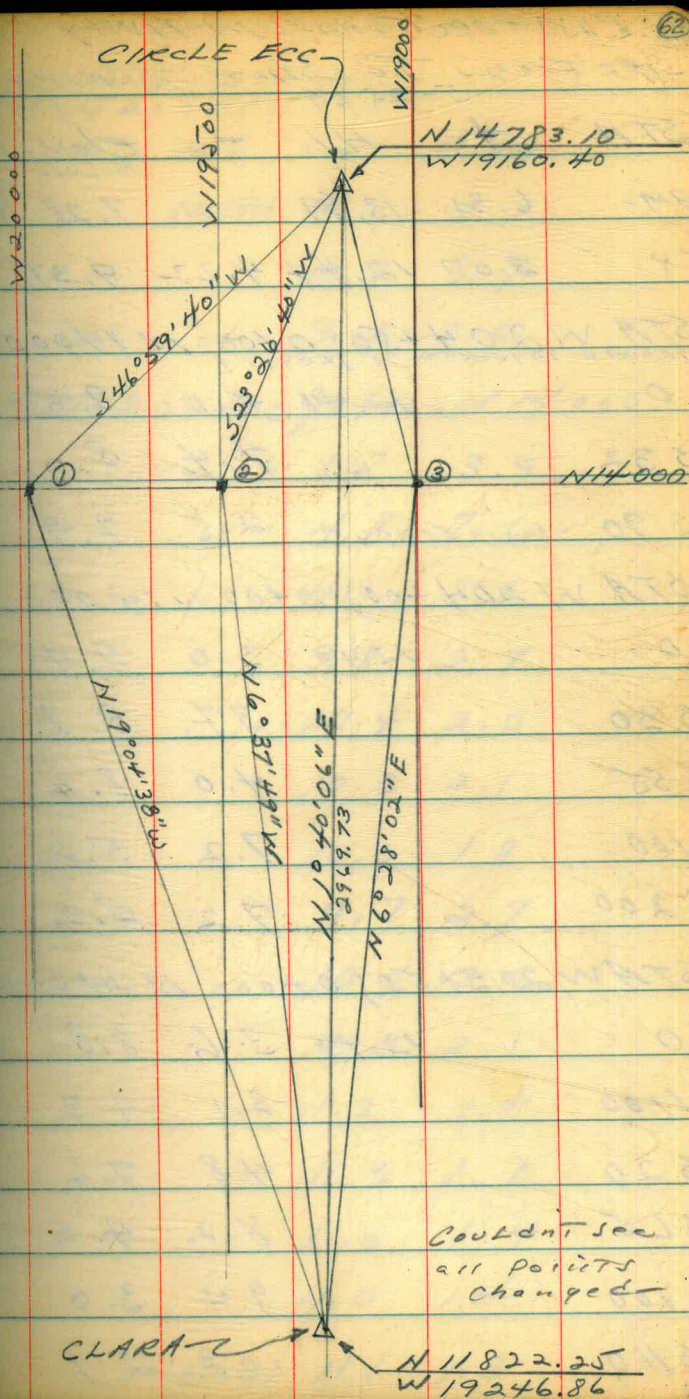 62
CIRCLE ECC
W19000
N 14783.10
W19160.40
W19500
W20000
S46°59'40" W
S23°26'40" W
①
②
③
N14000
N19°04'38"W
N6°37'49"W
N1°40'06"E
2969.73
N6°28'02"E
Couldn't see
all Points
Changed
CLARA
N 11822.25
W 19246.86